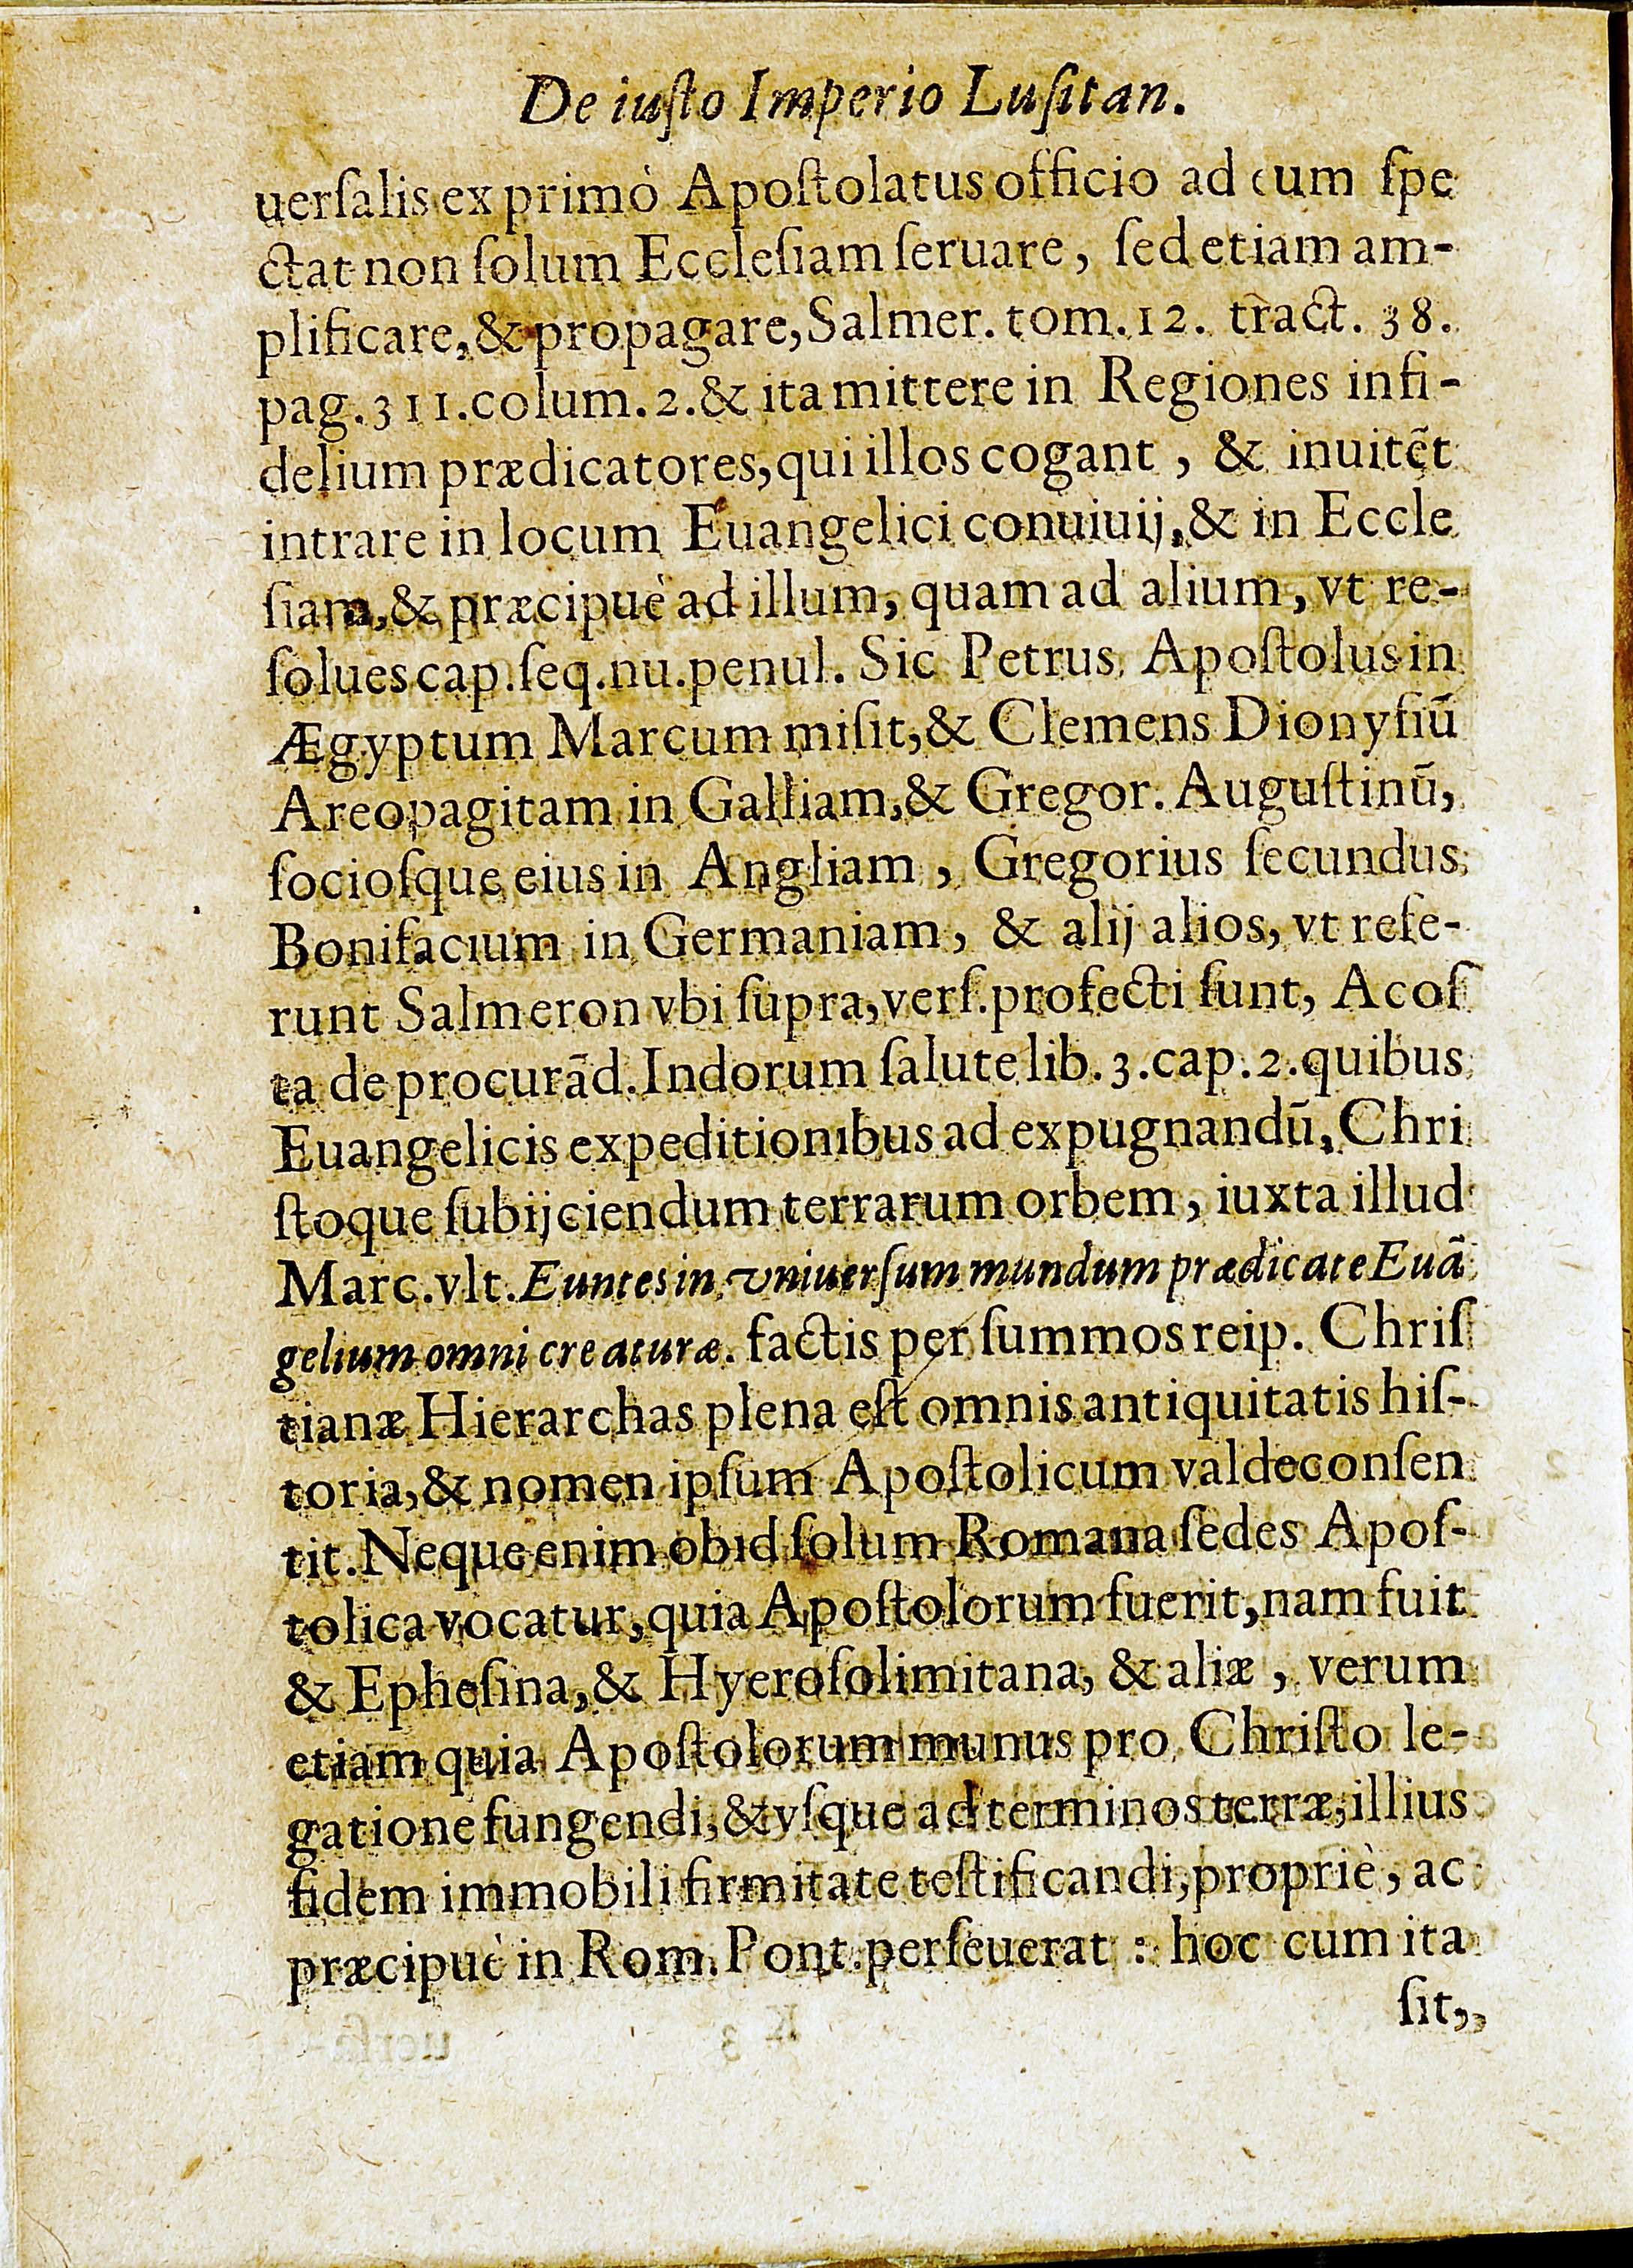 De iuſto Imperio Luſitan.
uerſalis ex primò Apoſtolatus officio ad eum ſpe
ctat non ſolum Eccleſiam ſeruare, ſed etiam am-
plificare, & propagare, Salmer. tom. 12. tract. 38.
pag. 311. colum. 2. & ita mittere in Regiones infi-
delium prædicatores, qui illos cogant, & inuitẽt
intrare in locum Euangelici conuiuij, & in Eccle
ſiam, & præcipuè ad illum, quam ad alium, vt re-
ſolues cap. ſeq. nu. penul. Sic Petrus Apoſtolus in
Ægyptum Marcum miſit, & Clemens Dionyſiũ
Areopagitam in Galliam, & Gregor. Auguſtinũ,
ſocioſque eius in Angliam, Gregorius ſecundus
Bonifacium in Germaniam, & alij alios, vt refe-
runt Salmeron vbi ſupra, verſ. profecti ſunt, Acoſ
ta de procurãd. Indorum ſalute lib. 3. cap. 2. quibus
Euangelicis expeditionibus ad expugnandũ, Chri
ſtoque ſubijciendum terrarum orbem, iuxta illud
Marc. vlt. Euntes in vniuerſum mundum prædicate Euã
gelium omni creaturæ. factis per ſummos reip. Chriſ
tianæ Hierarchas plena eſt omnis antiquitatis hiſ-
toria, & nomen ipſum Apoſtolicum valde conſen
tit. Neque enim ob id ſolum Romana ſedes Apoſ-
tolica vocatur, quia Apoſtolorum fuerit, nam fuit
& Epheſina, & Hyeroſolimitana, & aliæ, verum
etiam quia Apoſtolorum munus pro Chriſto le-
gatione fungendi, & vſque ad terminos terræ, illius
fidem immobili firmitate teſtificandi, propriè, ac
præcipuè in Rom. Pont. perſeuerat : hoc cum ita
ſit,